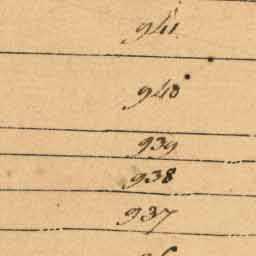 941
940
939
938
937